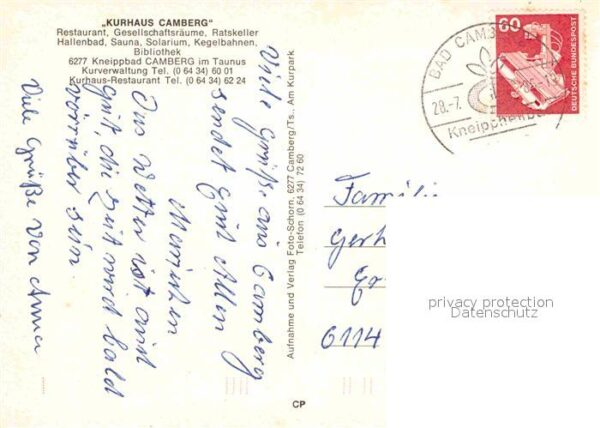 „KURHAUS CAMBERG“
Restaurant, Gesellschaftsräume, Ratskeller
Hallenbad, Sauna, Solarium, Kegelbahnen,
Bibliothek
6277 Kneippbad CAMBERG im Taunus
Kurverwaltung Tel. (0 64 34) 60 01
Kurhaus-Restaurant Tel. (0 64 34) 62 24
Viele Grüße aus Camberg
sendet
Das Wetter ist auch
gut, die Zeit wird bald
vorrüber sein.
Viele Grüße von Anna
Aufnahme und Verlag Foto-Schorn, 6277 Camberg/Ts., Am Kurpark
Telefon (0 64 34) 72 60
CP
60
DEUTSCHE BUNDESPOST
BAD CAMB
28.-7.
Kneippheilb
Familie
Gerh
6114
privacy protection
Datenschutz